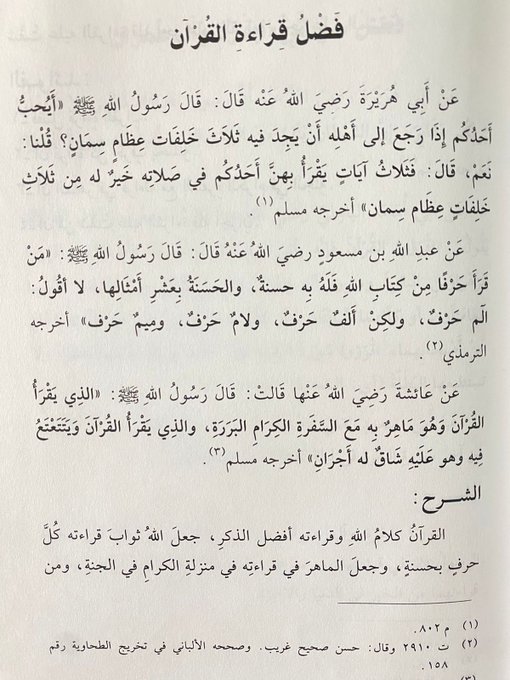 فَضْلُ قِرَاءَةِ القُرْآن
عَنْ أَبِي هُرَيْرَةَ رَضِيَ اللهُ عَنْه قَالَ: قَالَ رَسُولُ اللهِ ﷺ «أَيُحبُّ
أَحَدُكُم إِذَا رَجَعَ إلى أَهْله أَنْ يَجِدَ فيه ثَلاَثَ خَلفَات عِظَامٍ سِمَانٍ؟ قُلْنا:
نَعَمْ، قَالَ: فَثَلاثُ آيَاتٍ يَقْرَأُ بهنَّ أَحَدُكُم في صَلاته خَيرٌ له مِن ثَلاثِ
خَلِفَاتٍ عِظَام سِمان» أخرجه مسلم(١)
عَنْ عبدِ اللهِ بن مسعودٍ رضيَ اللهُ عَنْهُ قَالَ: قَالَ رَسُولُ اللهِ ﷺ: «مَنْ
قَرَأَ حَرْفًا مِنْ كِتَابِ اللهِ فَلَهُ به حسنةٌ، والحَسَنَةُ بِعَشْرِ أمْثَالِها، لا أقُولُ:
الَم حَرْفٌ، ولكِنْ أَلفٌ حَرْفٌ، ولامٌ حَرْفٌ، وميمٌ حَرْف» أخرجه
الترمذي(٢)
عَنْ عَائشةَ رَضِيَ اللهُ عَنْها قَالتْ: قَالَ رَسُولُ اللهِ ﷺ: «الذي يَقْرَأُ
القُرْآنَ وَهُوَ مَاهِرٌ بِه مَعَ السَّفَرةِ الكِرَامِ البَرَرَةِ، والذي يَقْرَأُ القُرْآنَ وَيَتَتَعْتَعُ
فِيه وهو عَلَيْهِ شَاقٌ له أَجْرَانِ» أخرجه مسلم(٣).
الشرح:
القرآنُ كلامُ اللهِ وقراءته أفضل الذكرِ، جعلَ اللهُ ثوابَ قراءته كُلَّ
حرفٍ بحسنةٍ، وجعلَ الماهرَ في قراءتِه في منزلةِ الكرامِ في الجنةِ، ومن
(١) م ٨٠٢.
(٢) ت ٢٩١٠ وقال: حسن صحيح غريب. وصححه الألباني في تخريج الطحاوية رقم
١٥٨.